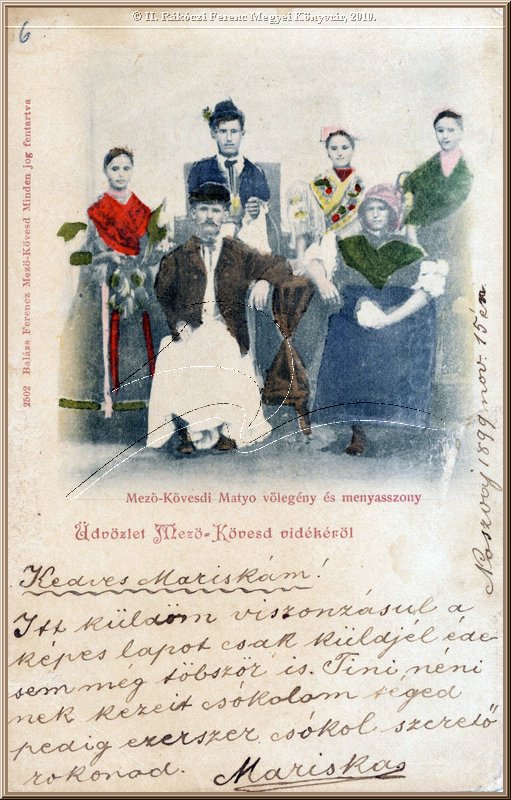 © II. Rákóczi Ferenc Megyei Könyvtár, 2010.
6
2502 Balázs Ferencz Mezö-Kövesd Minden jog fentartva
Mezö-Kövesdi Matyo völegény és menyasszony
Üdvözlet Mezö-Kövesd vidékéröl
Noszvaj 1899 nov. 15én
Kedves Mariskám!
Itt küldöm viszonzásul a
képes lapot csak küldjél éde
sem még többször is. Tini néni
nek kezeit csókolom téged
pedig ezerszer csókol szerető
rokonod. Mariska